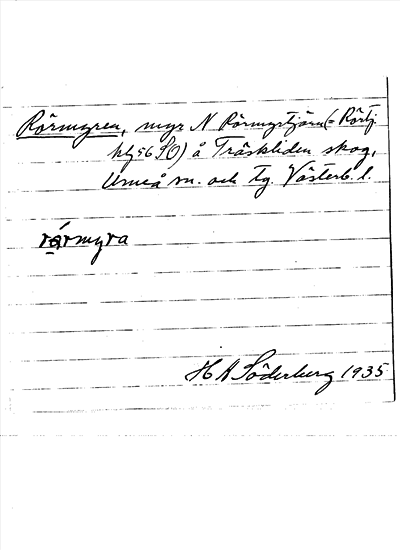 Rörmyren, myr N Rörmyrtjärn (= Rörtj.
kbl 56 SO) å Träskliden skog,
Umeå sn. och tg. Västerb. l.
rö́rmyra
H A Söderberg 1935